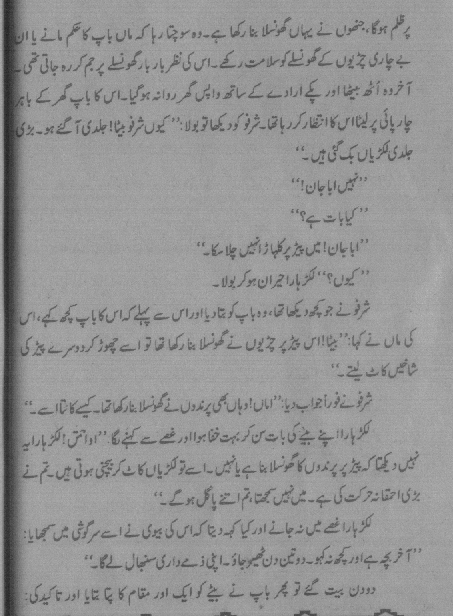 پر ظلم ہوگا، جنھوں نے یہاں گھونسلا بنا رکھا ہے۔ وہ سوچتا رہا کہ ماں باپ کا حکم مانے یا ان
بے چاری چڑیوں کے گھونسلے کو سلامت رکھے۔ اس کی نظر بار بار گھونسلے پر جم کر رہ جاتی تھی۔
آخر وہ اُٹھ بیٹھا اور پکے ارادے کے ساتھ واپس گھر روانہ ہوگیا۔ اس کا باپ گھر کے باہر
چارپائی پر لیٹا اس کا انتظار کر رہا تھا۔ شرفو کو دیکھا تو بولا: ”کیوں شرفو بیٹا! جلدی آگئے ہو۔ بڑی
جلدی لکڑیاں بک گئی ہیں۔“
”نہیں ابا جان!“
”کیا بات ہے؟“
”ابا جان! میں پیڑ پر کلہاڑا نہیں چلا سکا۔“
”کیوں؟“ لکڑہارا حیران ہو کر بولا۔
شرفو نے جو کچھ دیکھا تھا، وہ باپ کو بتا دیا اور اس سے پہلے کہ اس کا باپ کچھ کہے، اس
کی ماں نے کہا: ”بیٹا! اس پیڑ پر چڑیوں نے گھونسلا بنا رکھا تھا تو اسے چھوڑ کر دوسرے پیڑ کی
شاخیں کاٹ لیتے۔“
شرفو نے فوراً جواب دیا: ”اماں! وہاں بھی پرندوں نے گھونسلا بنا رکھا تھا۔ کیسے کاٹتا اسے۔“
لکڑہارا اپنے بیٹے کی بات سن کر بہت خفا ہوا اور غصے سے کہنے لگا: ”او احمق! لکڑہارا یہ
نہیں دیکھتا کہ پیڑ پر پرندوں کا گھونسلا بنا ہے یا نہیں۔ اسے تو لکڑیاں کاٹ کر بیچنی ہوتی ہیں۔ تم نے
بڑی احمقانہ حرکت کی ہے۔ میں نہیں سمجھتا، تم اتنے پاگل ہوگے۔“
لکڑہارا غصے میں نہ جانے اور کیا کہہ دیتا کہ اس کی بیوی نے اسے سرگوشی میں سمجھایا:
”آخر بچہ ہے اور کچھ نہ کہو۔ دو تین دن ٹھیر جاؤ۔ اپنی ذمے داری سنبھال لے گا۔“
دو دن بیت گئے تو پھر باپ نے بیٹے کو ایک اور مقام کا پتا بتایا اور تاکید کی: